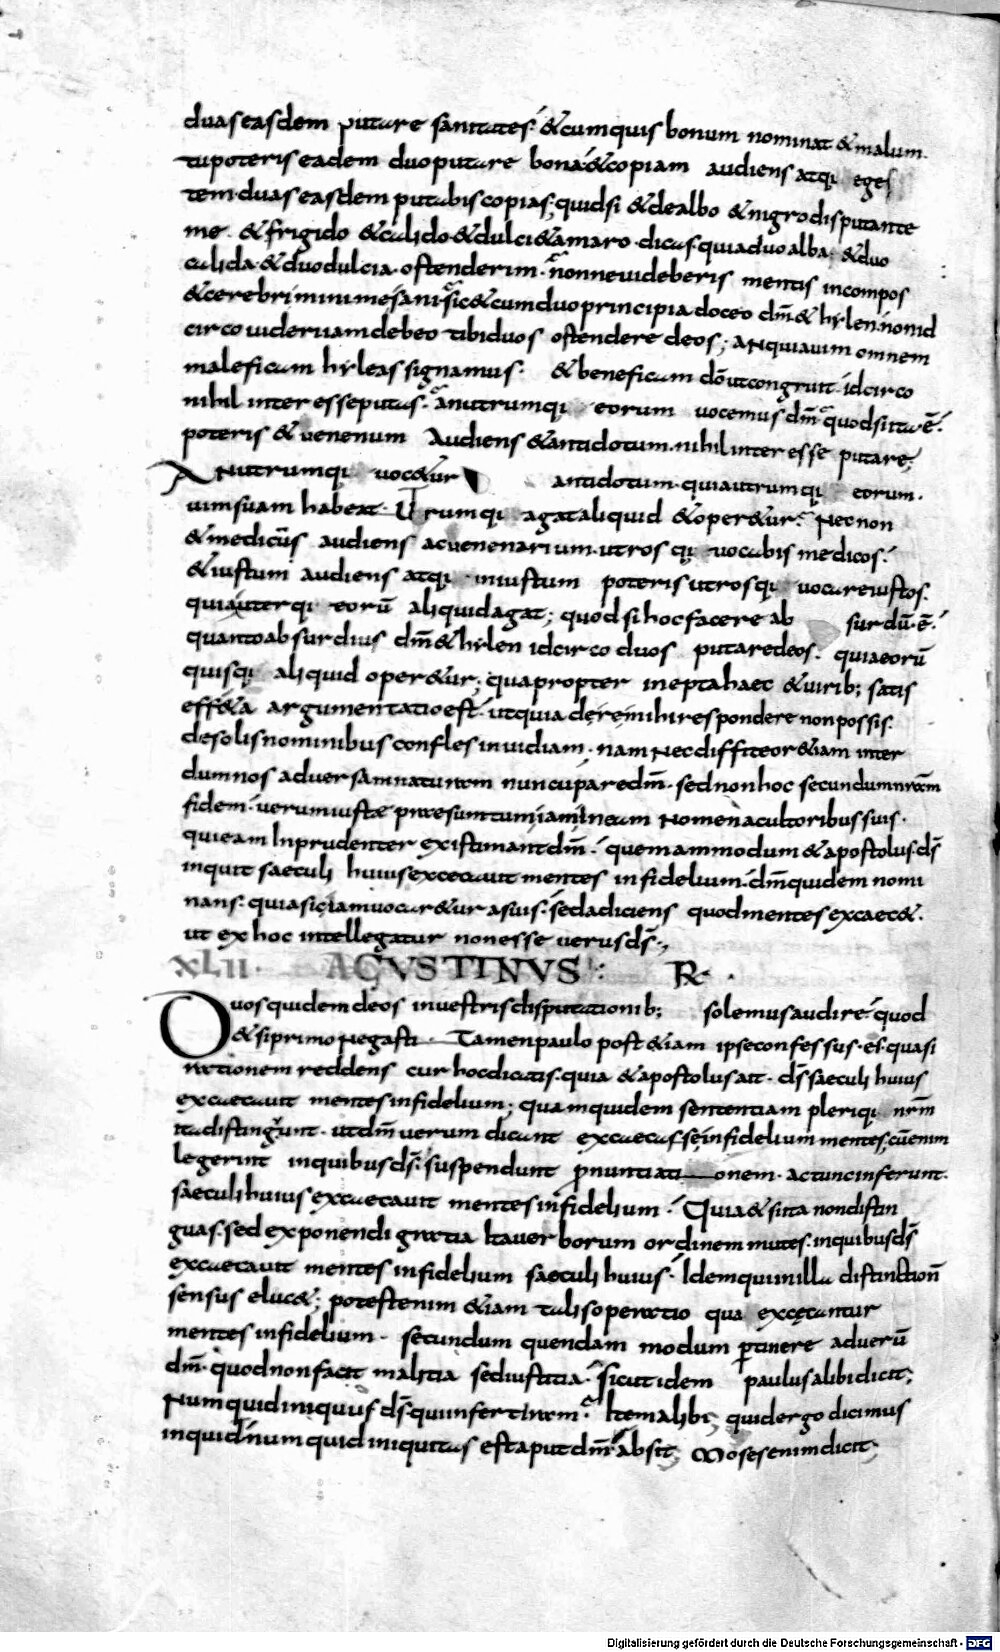 duas easdem putare sanitates. & cum quis bonum nominat & malum.
tu poteris eadem duo putare bona. & copiam audiens atq; eges
tem. duas easdem putabis copias; quid si & de albo & nigro disputante
me. & frigido & calido & dulci & amaro. dicas quia duo alba. & duo
calida. & duo dulcia. ostenderim. nonne uideberis mentis incompos
& cerebri minime sani. sic & cum duo principia doceo dm̄ & hylen. non id
circo uideri iam debeo tibi duos ostendere deos; an quia uim omnem
maleficam hyle assignamus. & beneficam dō ut congruit. idcirco
nihil interesse putas. an utrumq; eorum uocemus dm̄ quod si ita ē.
poteris & uenenum Audiens & antidotum. nihil interesse putare;
An utrumq; uocetur antidotum. quia utrumq; eorum.
uim suam habeat. Utrumq; agat aliquid & operetur. Nec non
& medicus audiens ac uenenarium. utrosq; uocabis medicos.
& iustum audiens atq; iniustum poteris utrosq; uocare iustos.
quia uterq; eorū aliquid agat; quod si hoc facere ab surdū ē.
quanto absurdius dm̄ & hylen idcirco duos putare deos. quia eorū
quisq; aliquid operetur; quapropter inepta haec & uirib; satis
effeta argumentatio est. ut quia de re mihi respondere non possis.
de solis nominibus confles inuidiam. nam nec diffiteor etiam inter
dum nos aduersam naturam nuncupare dm̄. sed non hoc secundum nr̄am
fidem. uerum iuxta praesumtum iam in eam nomen a cultoribus suis.
qui eam inprudenter existimant dm̄. quemammodum & apostolus. ds̄
inquit saeculi huius excecauit mentes infidelium. dm̄ quidem nomi
nans. quia sic iam uocaretur a suis. sed adiciens quod mentes excaecet.
ut ex hoc intellegatur non esse uerus ds̄.,
XLII. AGUSTINUS: R.
Duos quidem deos in uestris disputationib; solemus audire quod
& si primo negasti. Tamen paulo post etiam ipse confessus. es. quasi
rationem reddens cur hoc dicatis. quia & apostolus ait. ds̄ saeculi huius
excaecauit mentes infidelium; quam quidem sententiam pleriq; nr̄m
ita distingunt. ut dm̄ uerum dicant excaecasse infidelium mentes; cū enim
legerint in quibus ds̄. suspendunt pronuntiationem. ac tunc inferunt.
saeculi huius excaecauit mentes infidelium. Quia & si ita non distin
guas. sed exponendi gratia ita uerborum ordinem mutes. in quibus ds̄
excaecauit mentes infidelium saeculi huius. Idem qui in illa distinctionē
sensus elucet; potest enim etiam talis operatio qua excęcantur
mentes infidelium. secundum quendam modum ptinere ad uerū
dm̄. quod non facit malitia sed iustitia. sicut idem paulus alibi dicit;
Numquid iniquus ds̄. qui infert iram. Item alibi; quid ergo dicimus
inquid. numquid iniquitas est aput dm̄ absit; Moses enim dicit;
Digitalisierung gefördert durch die Deutsche Forschungsgemeinschaft - DFG